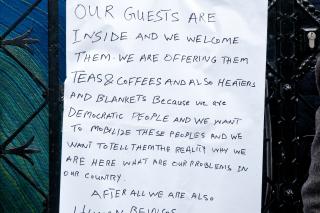 OUR GUESTS ARE
INSIDE AND WE WELCOME
THEM. WE ARE OFFERING THEM
TEAS & COFFEES AND ALSO HEATERS
AND BLANKETS Because we are
DEMOCRATIC PEOPLE AND WE WANT
TO MOBILIZE THESE PEOPLES AND WE
WANT TO TELL THEM THE REALITY WHY WE
ARE HERE WHAT ARE OUR PROBLEMS IN
OUR COUNTRY.
AFTER ALL WE ARE ALSO
HUMAN BEINGS